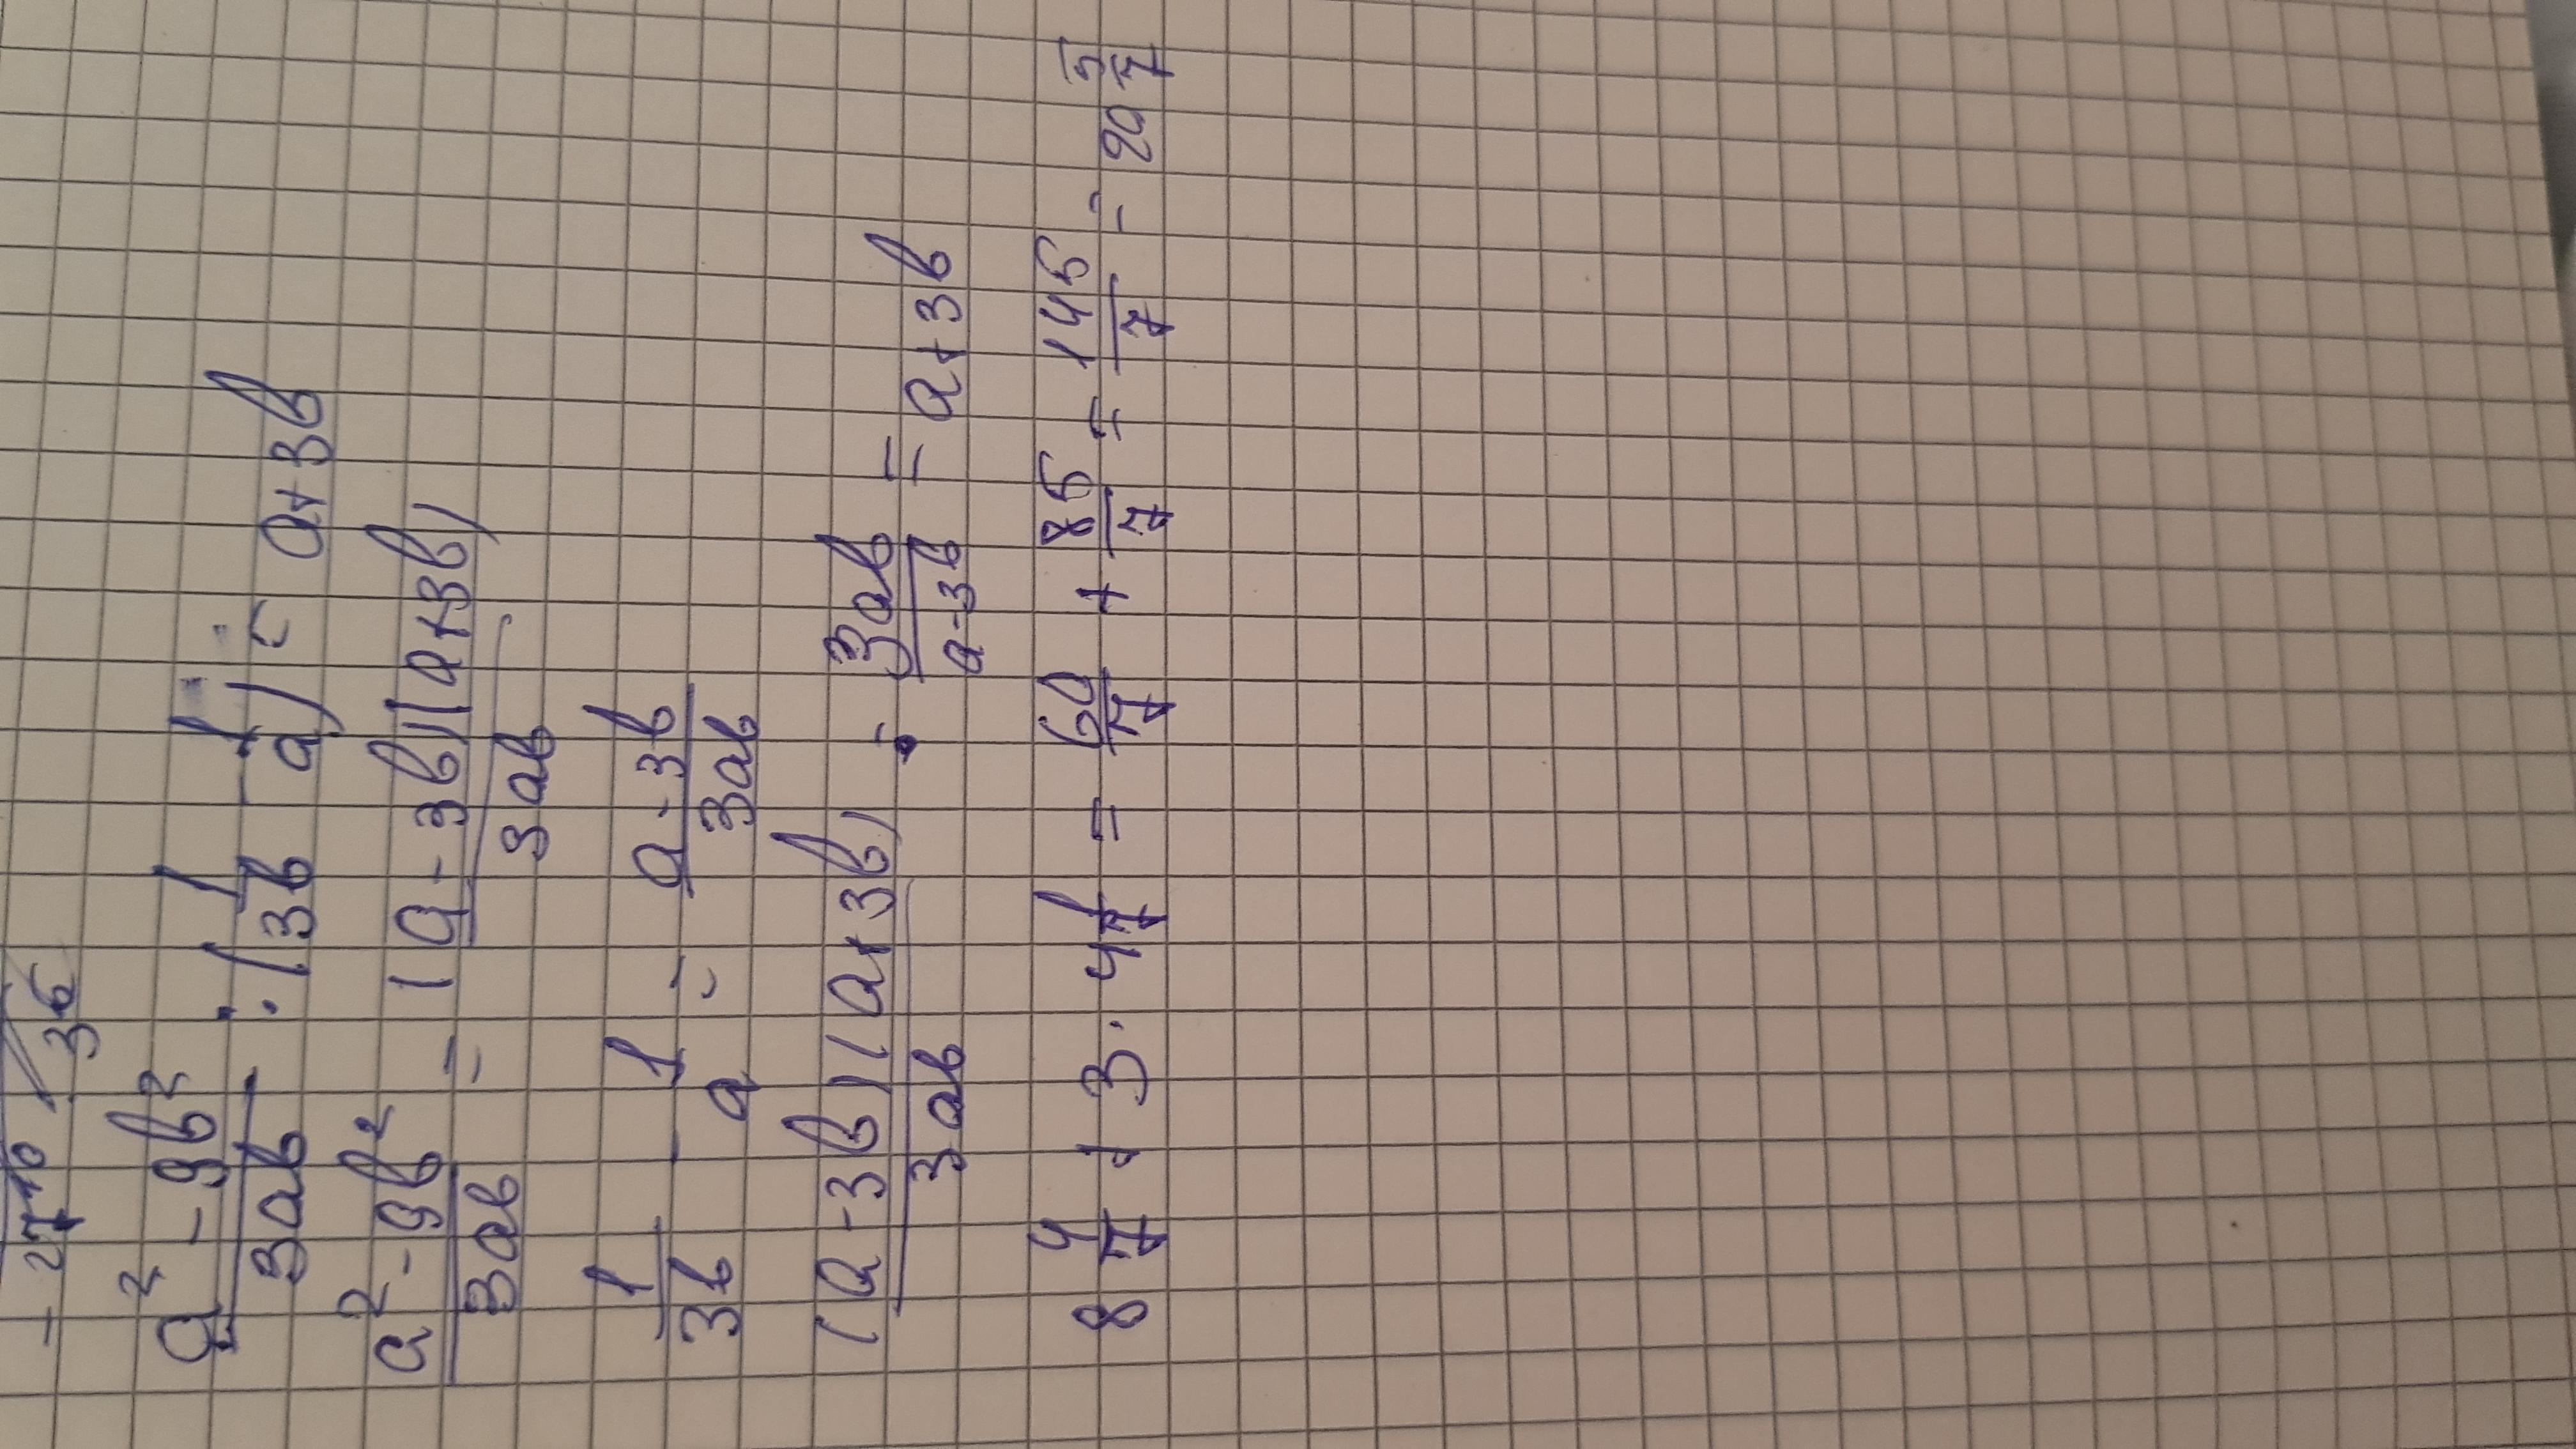 - 27 10 / 36
(a² - 9b²)/(3ab) : (1/(3b) - 1/a) = a+3b
(a² - 9b²)/(3ab) = ((a-3b)(a+3b))/(3ab)
1/(3b) - 1/a = (a-3b)/(3ab)
((a-3b)(a+3b))/(3ab) · (3ab)/(a-3b) = a+3b
8 4/7 + 3 · 4 1/7 = 60/7 + 85/7 = 145/7 = 20 5/7